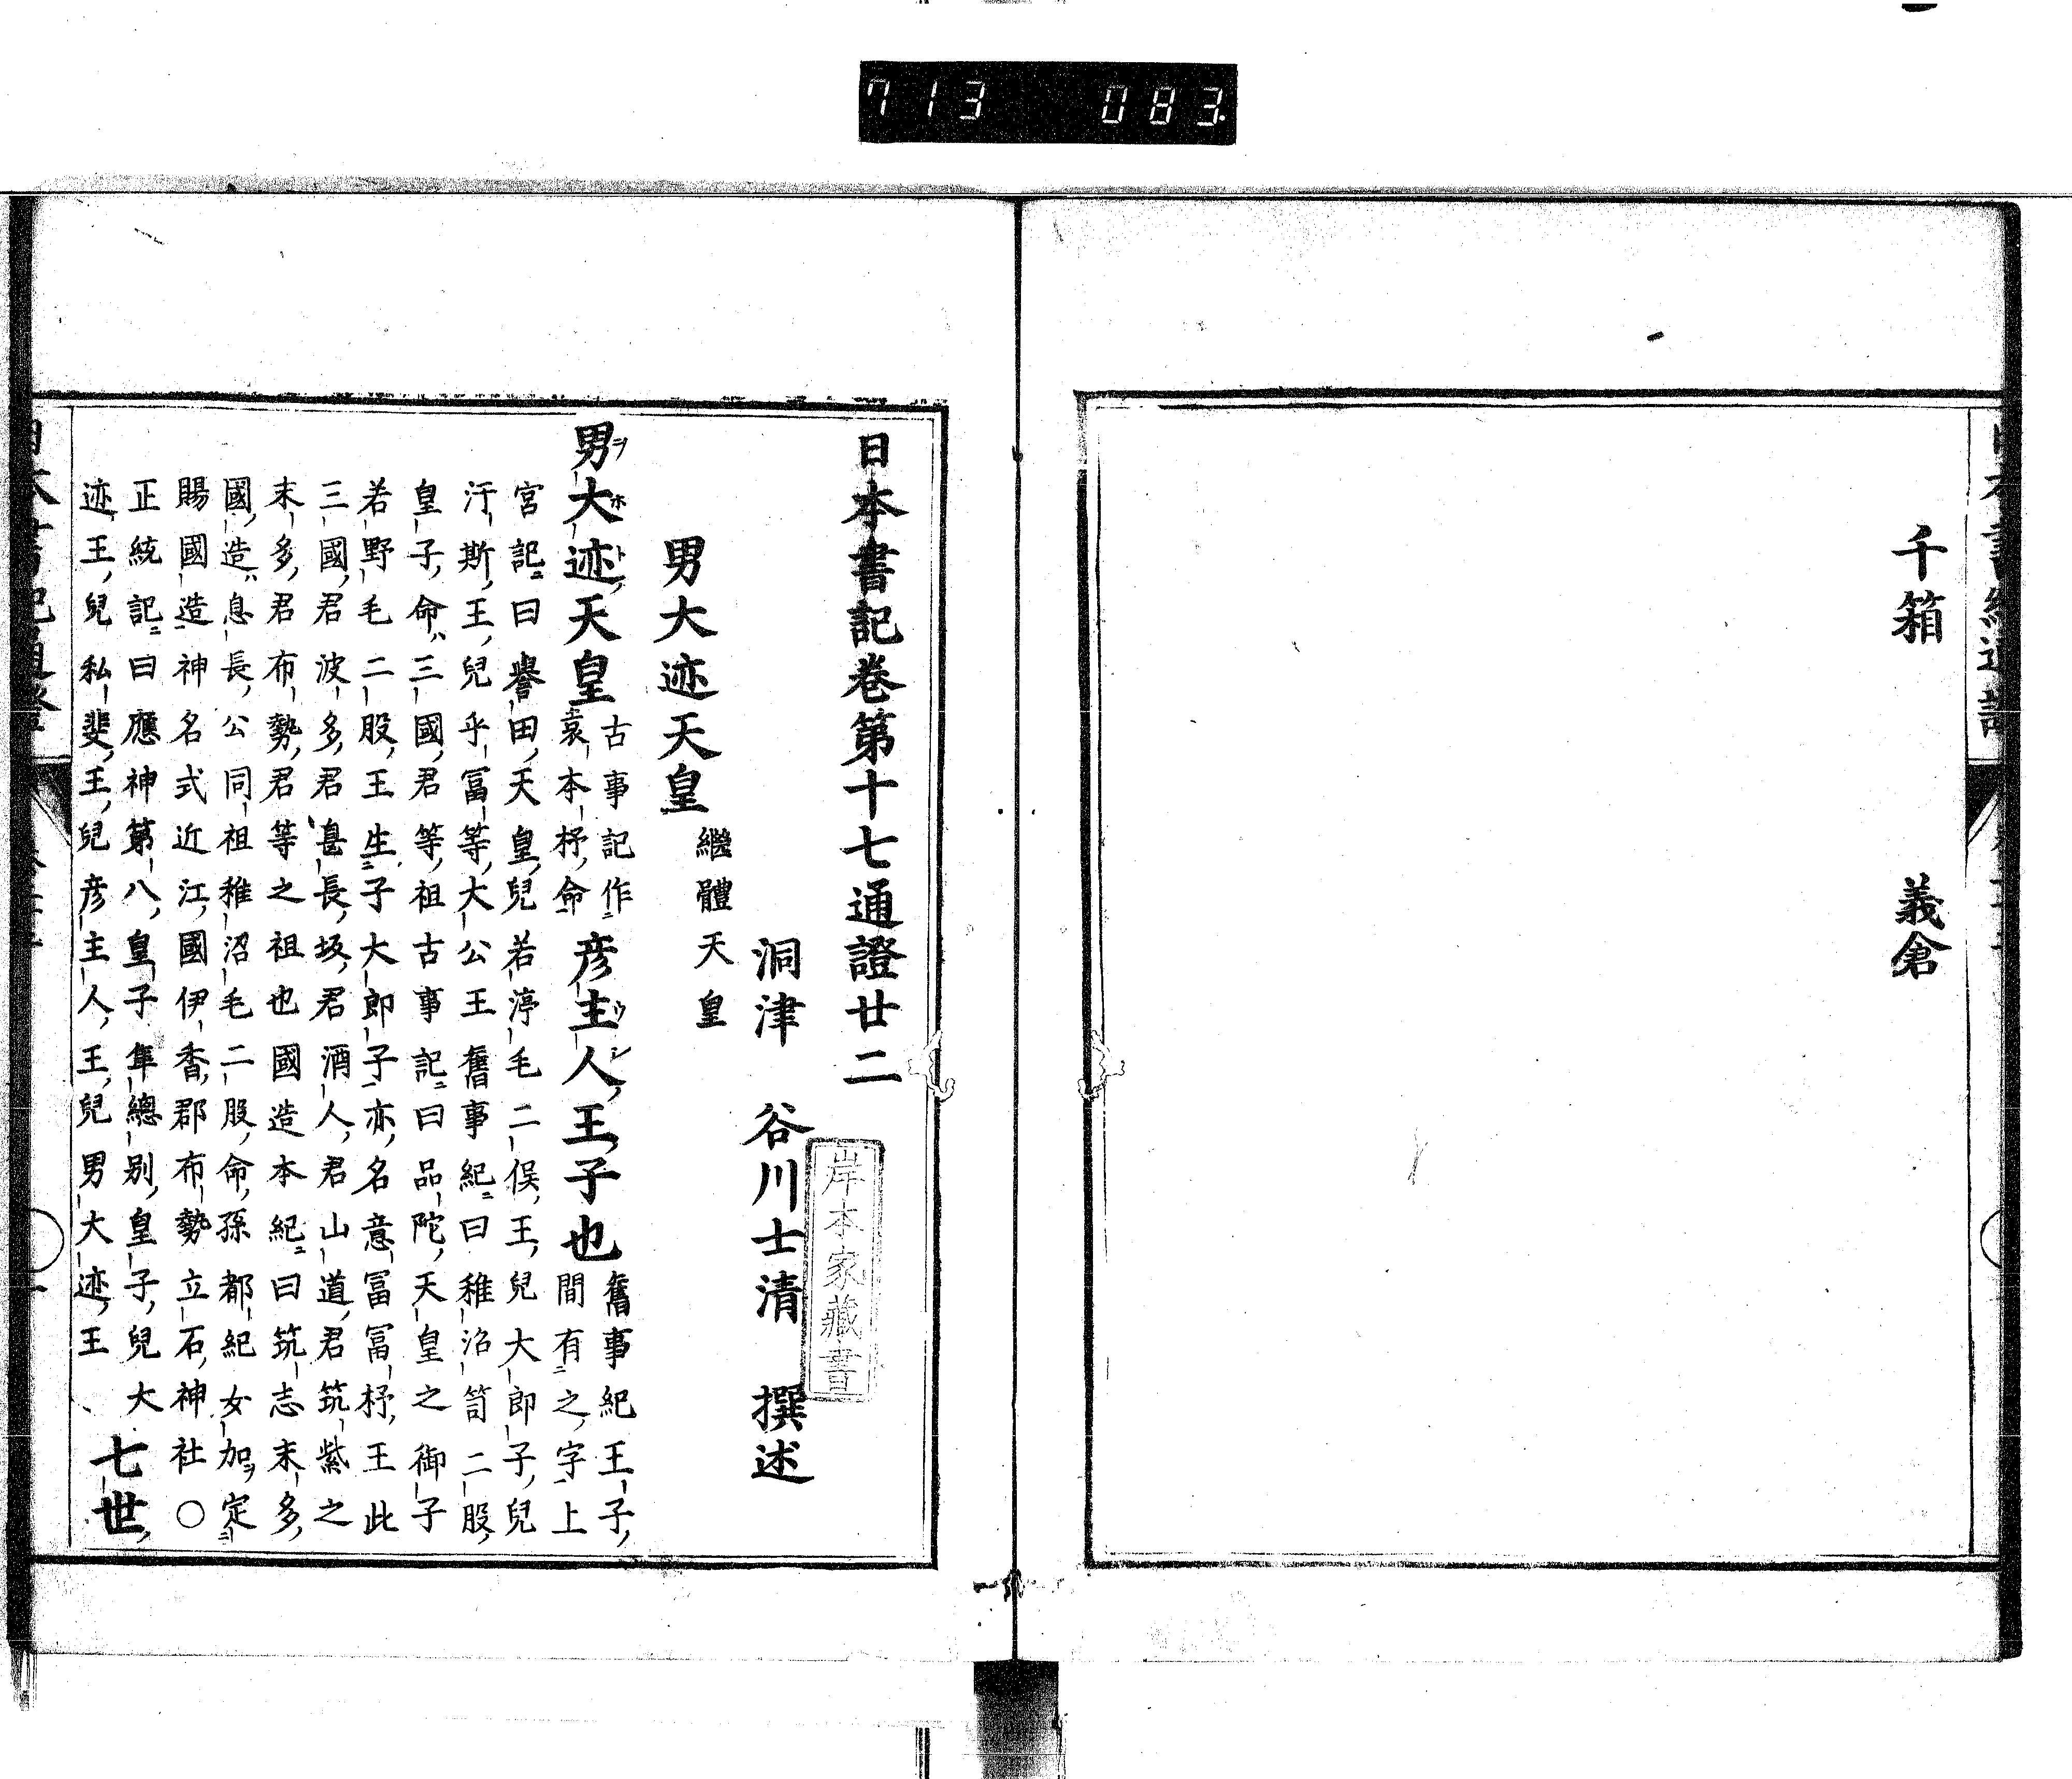 713 083
千箱　義倉
日本書記卷第十七通證廿二
洞津　谷川士清　撰述
岸本家藏書
男大迹天皇　繼體天皇
男大迹天皇　古事記作
袁本杼命　彦主人王子也　舊事紀王子
間有之字上
宮記曰譽田天皇兒若渟毛二俣王兒大郎子兒
汙斯王兒乎富等大公王舊事紀曰稚沼笥二股
皇子命三國君等祖古事記曰品陀天皇之御子
若野毛二股王生子大郎子亦名意富富杼王此
三國君波多君息長坂君酒人君山道君筑紫之
末多君布勢君等之祖也國造本紀曰筑志末多
國造息長公同祖稚沼毛二股命孫都紀女加定
賜國造神名式近江國伊香郡布勢立石神社○
正統記曰應神第八皇子隼總別皇子兒大
迹王兒私斐王兒彦主人王兒男大迹王　七世